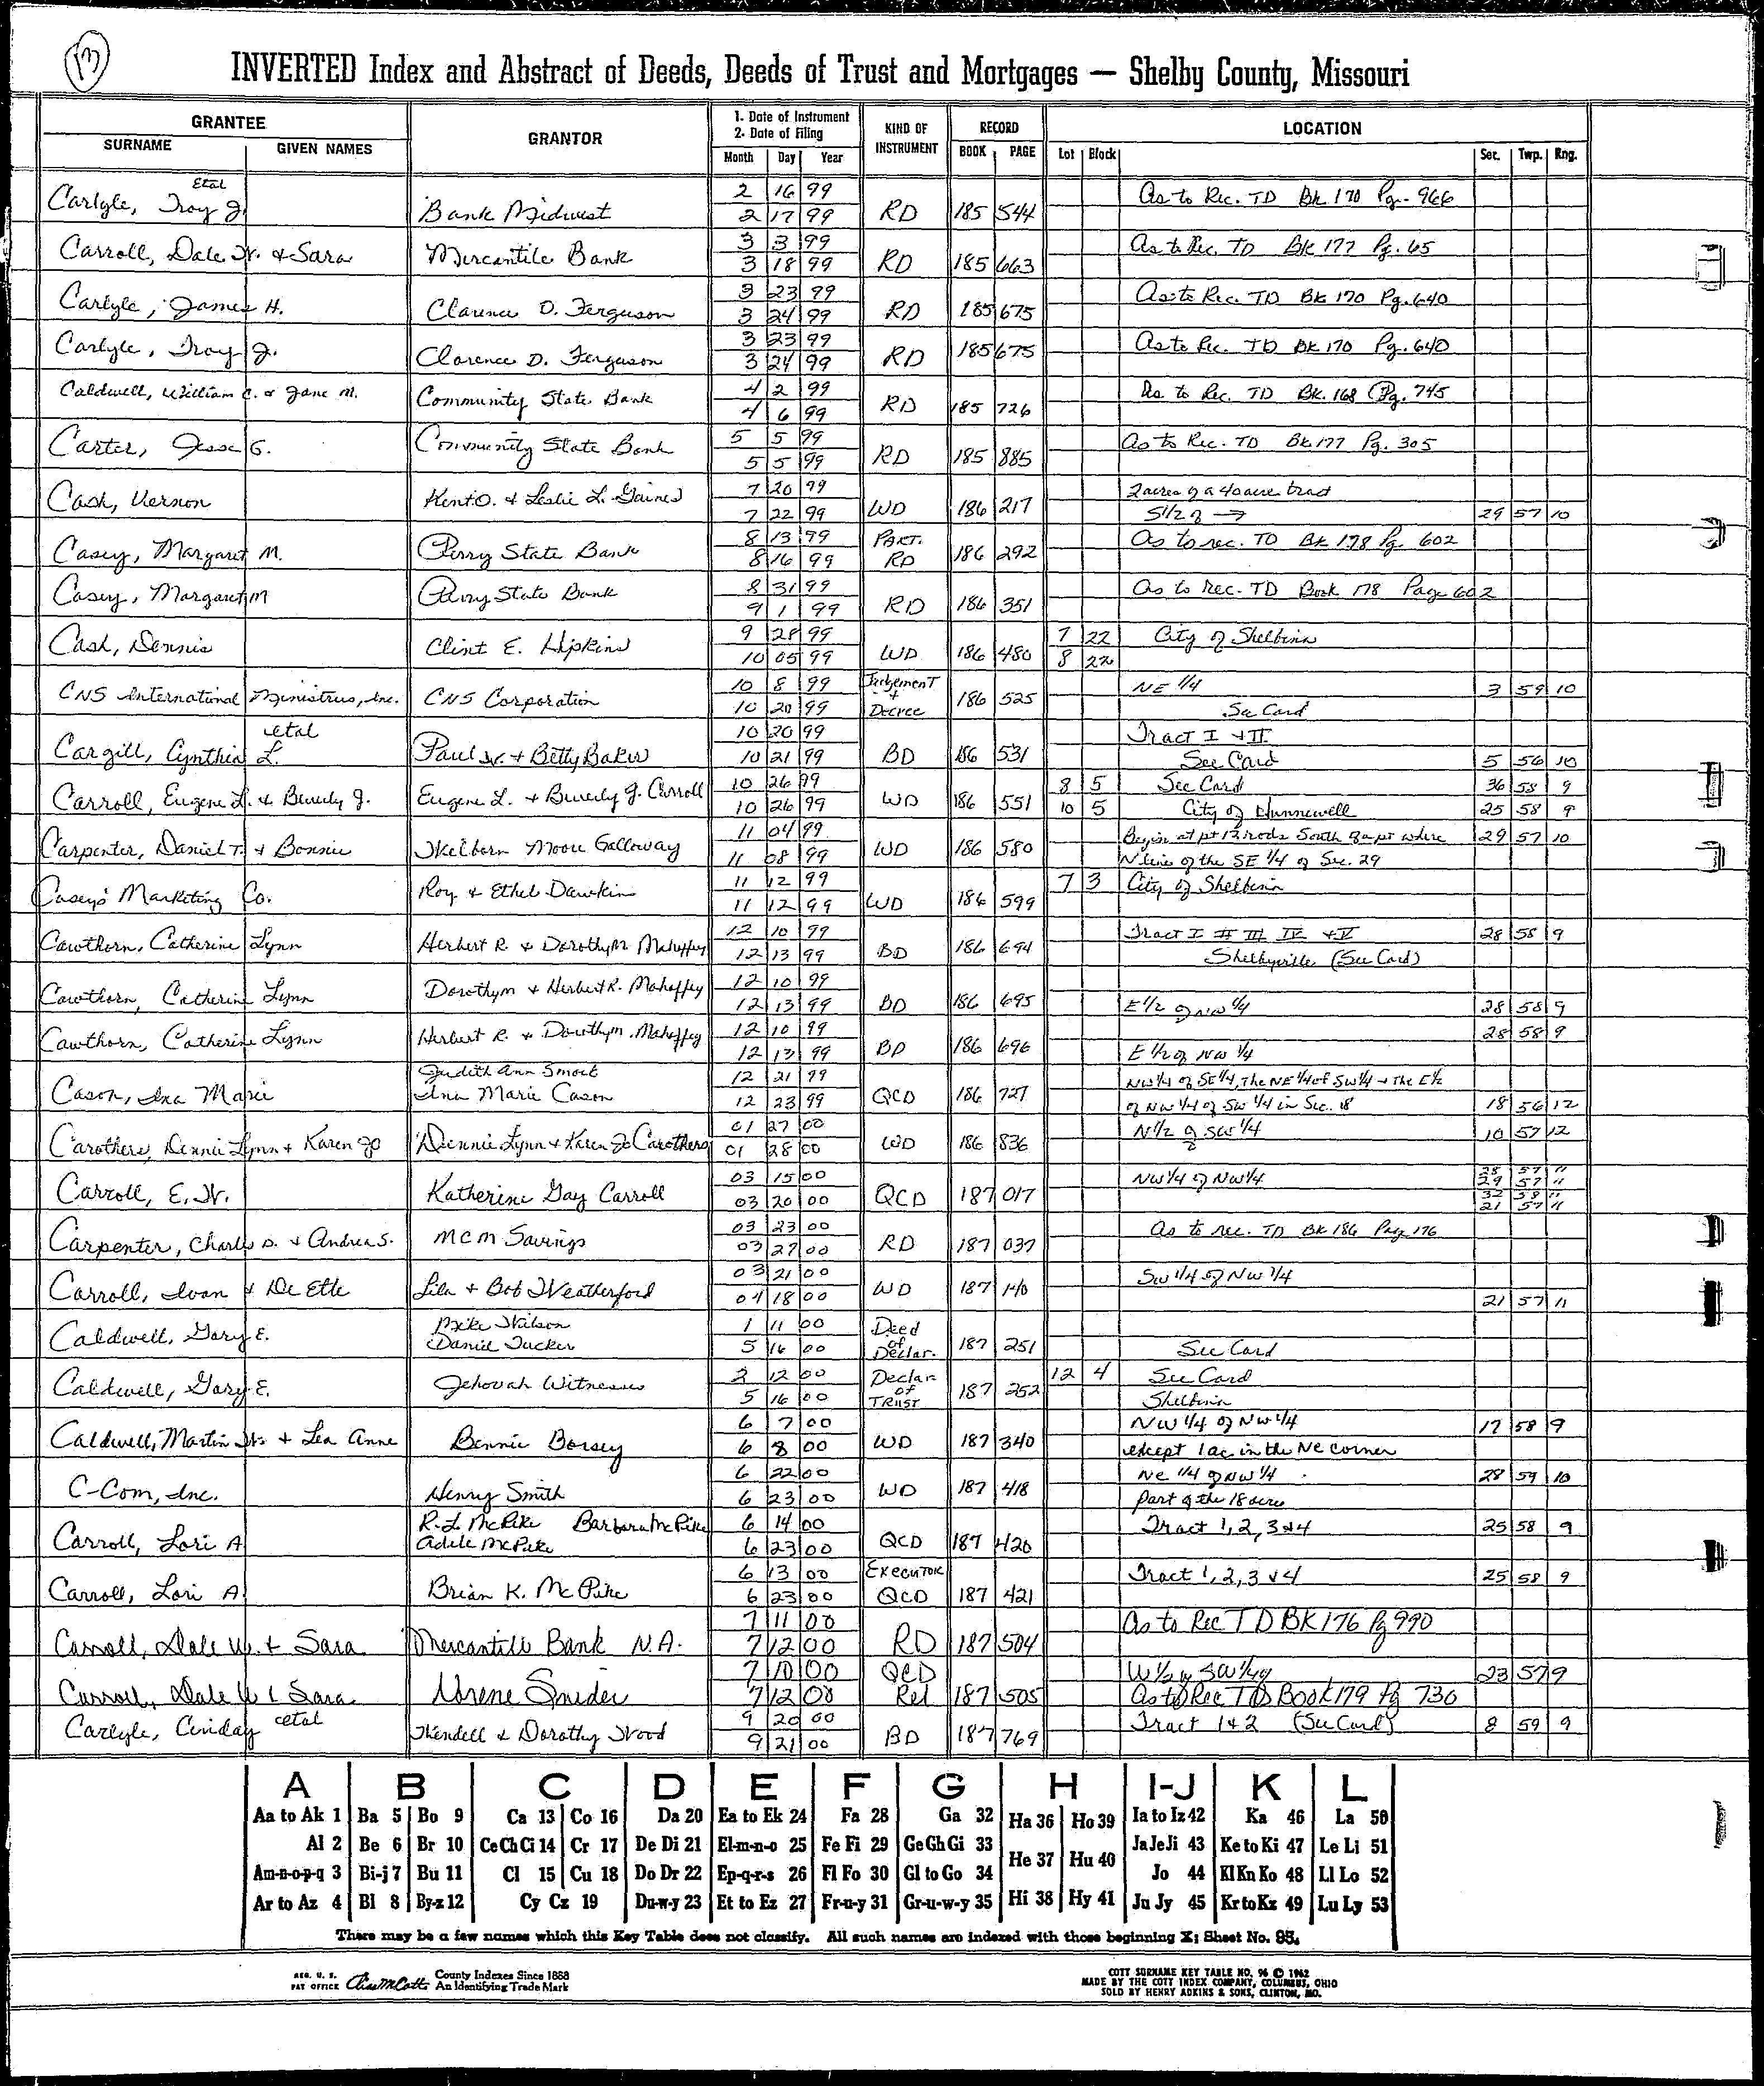 13
INVERTED Index and Abstract of Deeds, Deeds of Trust and Mortgages — Shelby County, Missouri
GRANTEE GRANTOR 1. Date of Instrument 2. Date of Filing KIND OF INSTRUMENT RECORD LOCATION
SURNAME GIVEN NAMES Month Day Year BOOK PAGE Lot Block Sec. Twp. Rng.
Etal 2 16 99 As to Rec. TD Bk 170 Pg. 966
Carlyle, Troy J. Bank Midwest 2 17 99 RD 185 544
3 3 99 As to Rec. TD Bk 177 Pg. 65
Carroll, Dale W. & Sara Mercantile Bank 3 18 99 RD 185 663
3 23 99 As to Rec. TD Bk 170 Pg. 640
Carlyle, James H. Clarence D. Ferguson 3 24 99 RD 185 675
3 23 99 As to Rec. TD Bk 170 Pg. 640
Carlyle, Troy J. Clarence D. Ferguson 3 24 99 RD 185 675
4 2 99 As to Rec. TD Bk. 168 Pg. 745
Caldwell, William C. & Jane M. Community State Bank 4 6 99 RD 185 726
5 5 99 As to Rec. TD Bk 177 Pg. 305
Carter, Jesse G. Community State Bank 5 5 99 RD 185 885
7 20 99 2 acres of a 40 acre tract
Cash, Vernon Kent O. & Leslie L. Gaines 7 22 99 WD 186 217 S1/2 of → 29 57 10
8 13 99 Part. As to rec. TD Bk 178 Pg 602
Casey, Margaret M. Perry State Bank 8 16 99 RD 186 292
8 31 99 As to Rec. TD Book 178 Page 602
Casey, Margaret M Perry State Bank 9 1 99 RD 186 351
9 28 99 7 22 City of Shelbina
Cash, Dennis Clint E. Hipkins 10 05 99 WD 186 480 8 22
10 8 99 Judgement + NE 1/4 3 59 10
CNS International Ministries, Inc. CNS Corporation 10 20 99 Decree 186 525 See Card
etal 10 20 99 Tract I & II
Cargill, Cynthia L. Paul W. & Betty Baker 10 21 99 BD 186 531 See Card 5 56 10
10 26 99 8 5 See Card 36 58 9
Carroll, Eugene L. & Beverly J. Eugene L. & Beverly J. Carroll 10 26 99 WD 186 551 10 5 City of Hunnewell 25 58 9
11 04 99 Begin at pt 12 rods South of a pt where 29 57 10
Carpenter, Daniel T. & Bonnie Welborn Moore Galloway 11 08 99 WD 186 580 N line of the SE 1/4 of Sec. 29
11 12 99 7 3 City of Shelbina
Casey's Marketing Co. Roy & Ethel Dawkin 11 12 99 WD 186 599
12 10 99 Tract I II III IV & V 28 58 9
Cawthorn, Catherine Lynn Herbert R. & Dorothy M Mahaffey 12 13 99 BD 186 694 Shelbyville (See Card)
12 10 99
Cawthorn, Catherine Lynn Dorothy M & Herbert R. Mahaffey 12 13 99 BD 186 695 E 1/2 of NW 1/4 28 58 9
12 10 99 28 58 9
Cawthorn, Catherine Lynn Herbert R. & Dorothy M. Mahaffey 12 13 99 BD 186 696 E 1/2 of NW 1/4
Judith Ann Smock 12 21 99 NW1/4 of SE1/4, The NE1/4 of SW1/4 & The E1/2
Cason, Ina Marie Ina Marie Cason 12 23 99 QCD 186 727 of NW 1/4 of SW 1/4 in Sec. 18 18 56 12
01 27 00 N 1/2 of SW 1/4 10 57 12
Carothers, Dennie Lynn & Karen Jo Dennie Lynn & Karen Jo Carothers 01 28 00 WD 186 836
03 15 00 NW1/4 of NW1/4 28 57 11
29 57 11
Carroll, E. W. Katherine Gay Carroll 03 20 00 QCD 187 017 32 58 11
21 57 11
03 23 00 As to rec. TD Bk 186 Pag 176
Carpenter, Charles D. & Andrea S. MCM Savings 03 27 00 RD 187 037
03 21 00 SW 1/4 of NW 1/4
Carroll, Ivan & De Ette Lila & Bob Weatherford 04 18 00 WD 187 140 21 57 11
Mike Wilson 1 11 00 Deed of
Caldwell, Gary E. Daniel Tucker 5 16 00 Declar. 187 251 See Card
2 12 00 Declar of 12 4 See Card
Caldwell, Gary E. Jehovah Witnesses 5 16 00 TRUST 187 252 Shelbina
6 7 00 NW 1/4 of NW 1/4 17 58 9
Caldwell, Martin & Lea Anne Bennie Borsey 6 8 00 WD 187 340 except 1 ac in the NE corner
6 22 00 NE 1/4 of NW 1/4 28 59 10
C-Com, Inc. Henry Smith 6 23 00 WD 187 418 Part of the 18 acre
R.L. McPike Barbara McPike 6 14 00 Tract 1, 2, 3 & 4 25 58 9
Carroll, Lori A Adele McPike 6 23 00 QCD 187 420
6 13 00 EXECUTOR Tract 1, 2, 3 & 4 25 58 9
Carroll, Lori A Brian K. McPike 6 23 00 QCD 187 421
7 11 00 As to Rec TD BK 176 Pg 990
Carroll, Dale W. & Sara Mercantile Bank N.A. 7 12 00 RD 187 504
7 10 00 QCD W 1/2 of SW 1/4 23 57 9
Carroll, Dale W & Sara Norene Snider 7 12 00 Rel 187 505 As to Rec TD Book 179 Pg 736
etal 9 20 00 Tract 1 & 2 (See Card) 8 59 9
Carlyle, Cinday Wendell & Dorothy Wood 9 21 00 BD 187 769
A B C D E F G H I-J K L
Aa to Ak 1 Ba 5 Bo 9 Ca 13 Co 16 Da 20 Ea to Ek 24 Fa 28 Ga 32 Ha 36 Ho 39 Ia to Iz 42 Ka 46 La 50
Al 2 Be 6 Br 10 Ce Ch Ci 14 Cr 17 De Di 21 El-m-n-o 25 Fe Fi 29 Ge Gh Gi 33 He 37 Hu 40 Ja Je Ji 43 Ke to Ki 47 Le Li 51
Am-n-o-p-q 3 Bi-j 7 Bu 11 Cl 15 Cu 18 Do Dr 22 Ep-q-r-s 26 Fl Fo 30 Gl to Go 34 Jo 44 Kl Kn Ko 48 Ll Lo 52
Ar to Az 4 Bl 8 By-z 12 Cy Cz 19 Du-w-y 23 Et to Ez 27 Fr-u-y 31 Gr-u-w-y 35 Hi 38 Hy 41 Ju Jy 45 Kr to Kz 49 Lu Ly 53
There may be a few names which this Key Table does not classify. All such names are indexed with those beginning X; Sheet No. 95.
REG. U. S. PAT OFFICE County Indexes Since 1888 An Identifying Trade Mark
COTT SURNAME KEY TABLE NO. 96 © 1962
MADE BY THE COTT INDEX COMPANY, COLUMBUS, OHIO
SOLD BY HENRY ADKINS & SONS, CLINTON, MO.